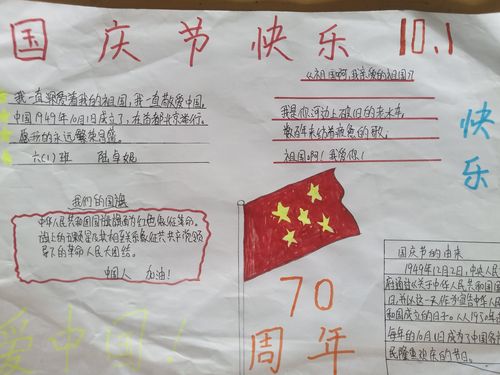 国庆节快乐 10.1
我一直深爱着我的祖国,我一直敬爱中国。
中国1949年10月1日成立了,在首都北京举行。
愿我的永远繁荣昌盛。
六(1)班 陆卓妮
《祖国啊,我亲爱的祖国》
我是你河边上破旧的老水车,
数百年来纺着疲惫的歌;
祖国啊!我爱你!
快乐
我们的国旗
中华人民共和国国旗旗面为红色象征革命。
旗上的五颗星及其相互关系象征共产党领
导下的革命人民大团结。
中国人 加油!
爱中国!
70
周年
国庆节的由来
1949年12月2日,中央人
通过《关于中华人民共和国国
日,并以这一天作为宣告中华人
和国成立的日子。从1950年
每年的10月1日成为了中国各
民隆重欢乐的节日。